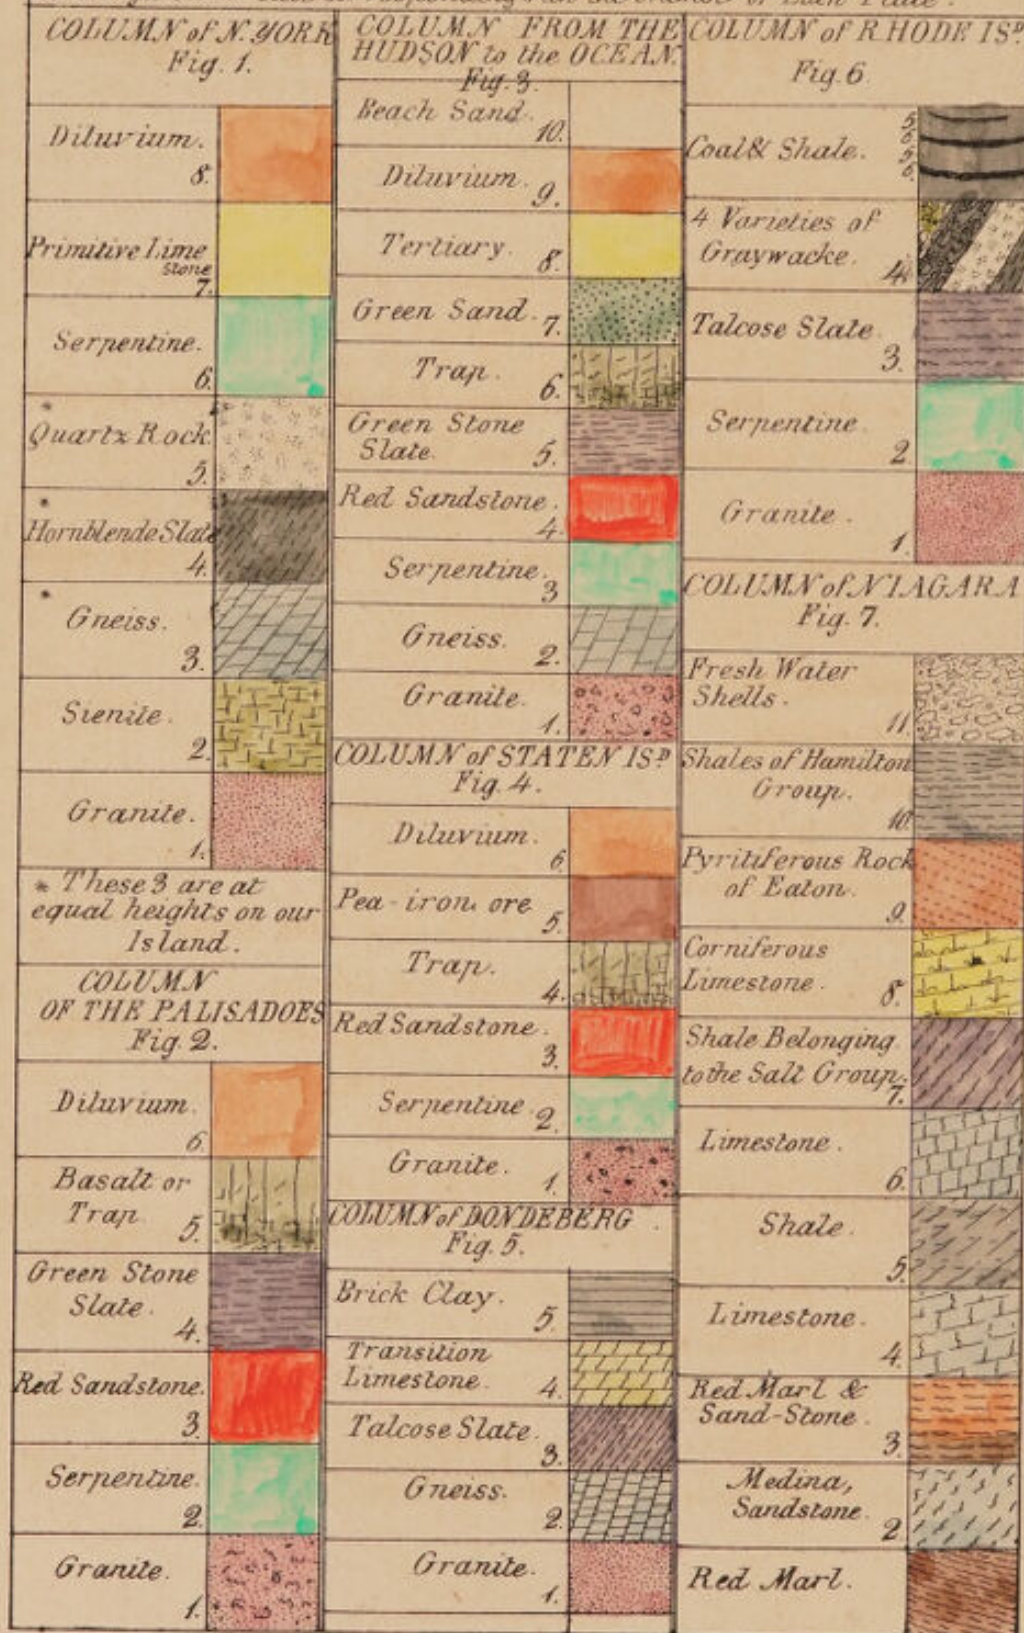 COLUMN of N. YORK
Fig. 1.
Diluvium.
8.
Primitive Lime
stone
7.
Serpentine.
6.
Quartz Rock
5.
Hornblende Slate
4.
Gneiss.
3.
Sienite.
2.
Granite.
1.
* These 3 are at
equal heights on our
Island.
COLUMN
OF THE PALISADOES
Fig. 2.
Diluvium.
6.
Basalt or
Trap. 5.
Green Stone
Slate.
4.
Red Sandstone.
3.
Serpentine.
2.
Granite.
1.
COLUMN FROM THE
HUDSON to the OCEAN.
Fig. 3.
Beach Sand.
10.
Diluvium.
9.
Tertiary.
8.
Green Sand. 7.
Trap.
6.
Green Stone
Slate. 5.
Red Sandstone.
4.
Serpentine.
3
Gneiss.
2.
Granite.
1.
COLUMN of STATEN ISD
Fig. 4.
Diluvium.
6
Pea-iron ore
5.
Trap.
4.
Red Sandstone.
3.
Serpentine.
2.
Granite.
1.
COLUMN of DONDEBERG
Fig. 5.
Brick Clay.
5.
Transition
Limestone. 4.
Talcose Slate.
3.
Gneiss.
2.
Granite.
1.
COLUMN of RHODE ISD
Fig. 6.
Coal & Shale.
5
5
5
5.
4 Varieties of
Graywacke.
4
Talcose Slate
3.
Serpentine.
2
Granite.
1.
COLUMN of NIAGARA
Fig. 7.
Fresh Water
Shells.
11
Shales of Hamilton
Group.
10.
Pyritiferous Rock
of Eaton.
9.
Corniferous
Limestone. 8.
Shale Belonging
to the Salt Group.
7.
Limestone.
6.
Shale.
5.
Limestone.
4.
Red Marl &
Sand-Stone.
3.
Medina,
Sandstone.
2
Red Marl.